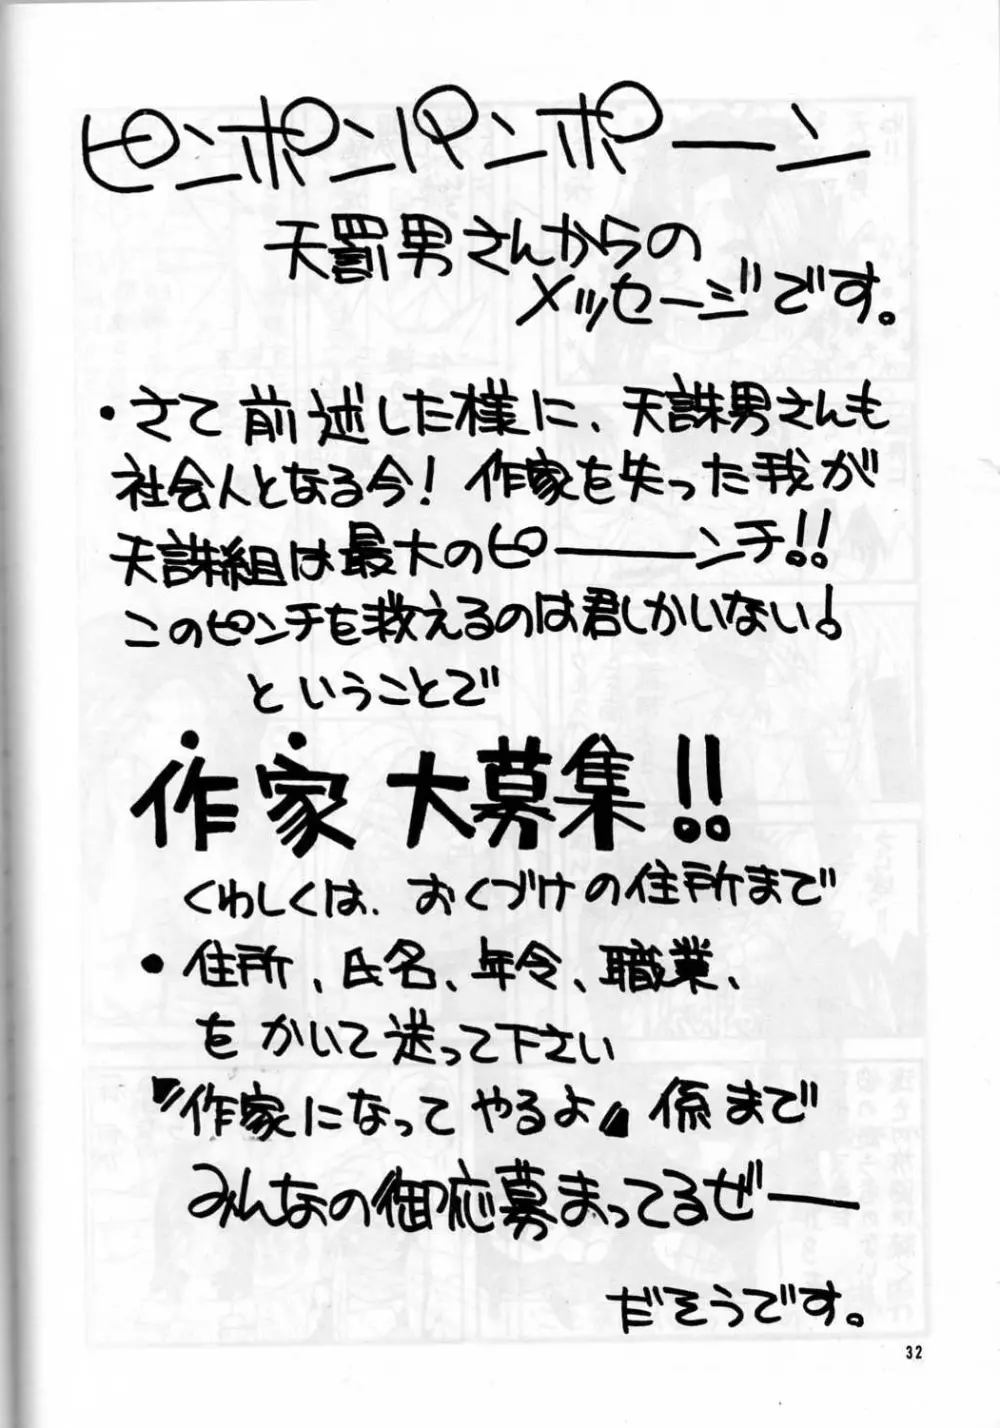 ピンポンパンポーン
天罰男さんからの
メッセージです。
・さて前述した様に、天誅男さんも
社会人となる今！作家を失った我が
天誅組は最大のピーーーンチ!!
このピンチを救えるのは君しかいない！
ということで
作家大募集!!
くわしくは、おくづけの住所まで
・住所、氏名、年令、職業、
をかいて送って下さい
『作家になってやるよ』係まで
みんなの御応募まってるぜー
だそうです。
32